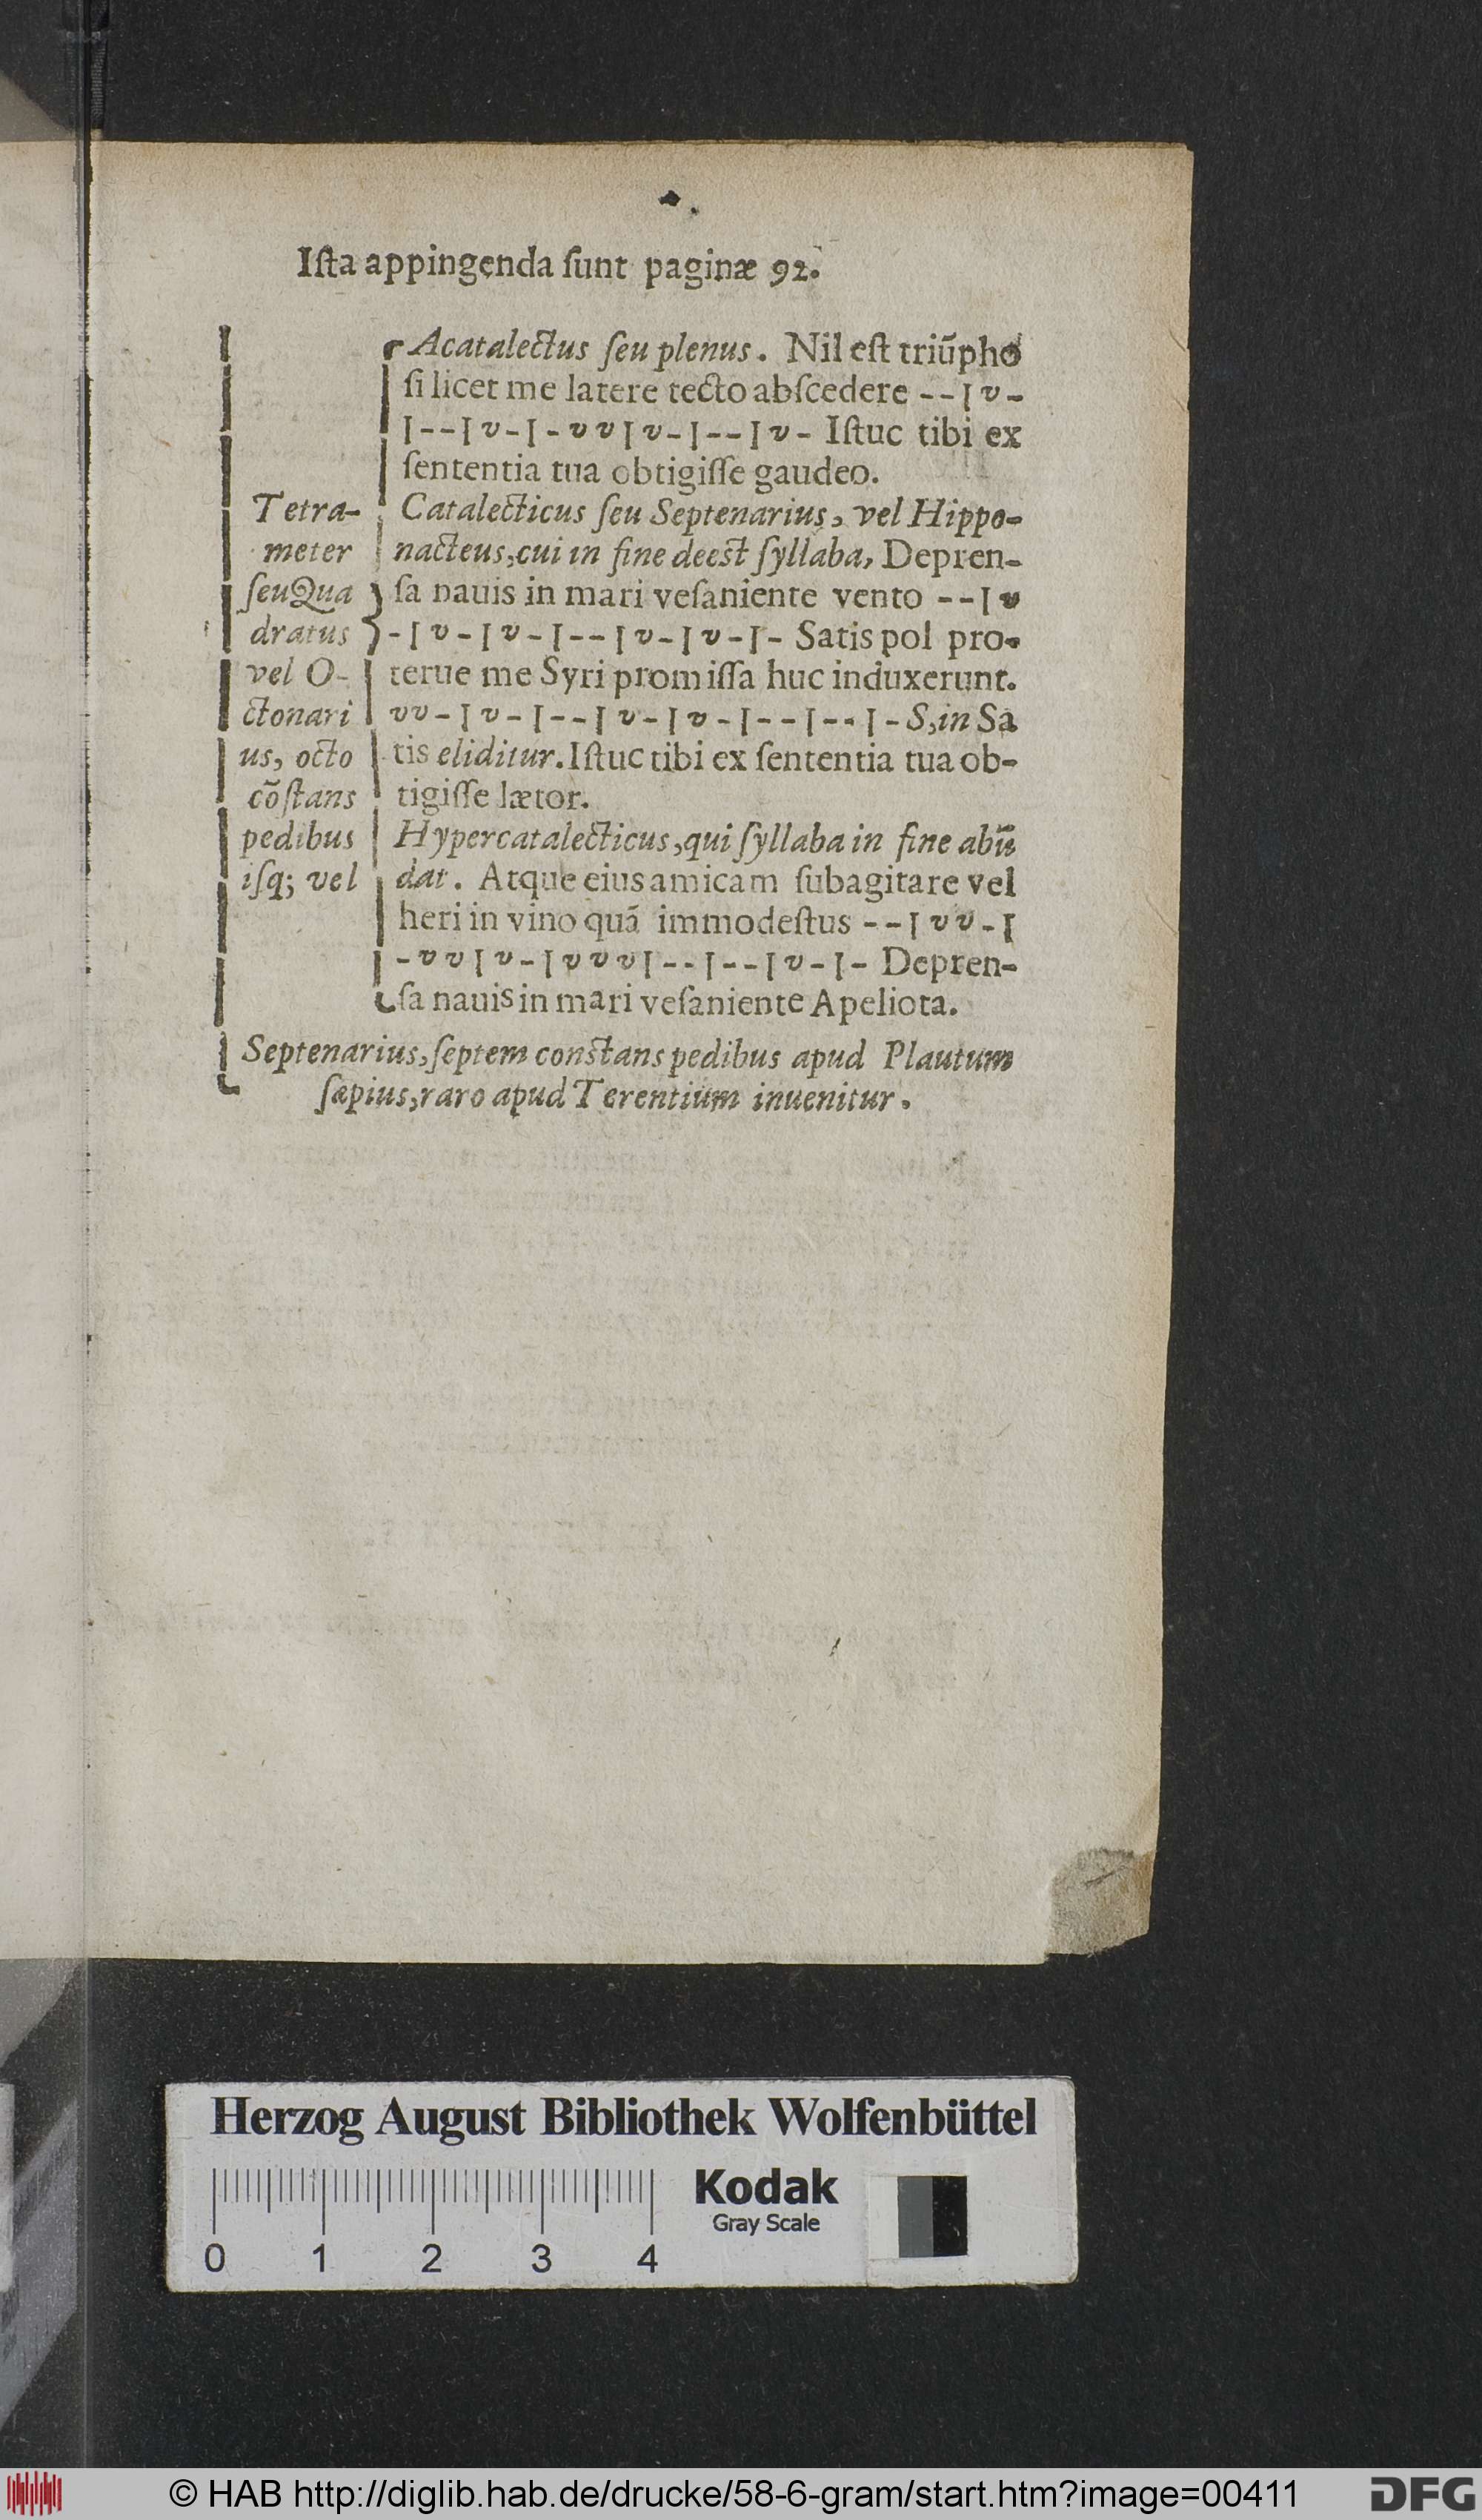 Iſta appingenda ſunt paginæ 92.
Tetra-
meter
ſeu Qua
dratus
vel O-
ctonari
us, octo
cõſtans
pedibus
iſq; vel
Acatalectus ſeu plenus. Nil eſt triũpho
ſi licet me latere tecto abſcedere --|v-
|--|v-|-vv|v-|--|v- Iſtuc tibi ex
ſententia tua obtigiſſe gaudeo.
Catalecticus ſeu Septenarius, vel Hippo-
nacteus, cui in fine deeſt ſyllaba, Depren-
ſa nauis in mari veſaniente vento --|v
-|v-|v-|--|v-|v-|- Satis pol pro-
terue me Syri promiſſa huc induxerunt.
vv-|v-|--|v-|v-|--|--|- S, in Sa
tis eliditur. Iſtuc tibi ex ſententia tua ob-
tigiſſe lætor.
Hypercatalecticus, qui ſyllaba in fine abũ
dat. Atque eius amicam ſubagitare vel
heri in vino quã immodeſtus --|vv-|
-vv|v-|vvv|--|--|v-|- Depren-
ſa nauis in mari veſaniente Apeliota.
Septenarius, ſeptem conſtans pedibus apud Plautum
ſæpius, raro apud Terentium inuenitur.
Herzog August Bibliothek Wolfenbüttel
0 1 2 3 4
Kodak
Gray Scale
© HAB http://diglib.hab.de/drucke/58-6-gram/start.htm?image=00411
DFG